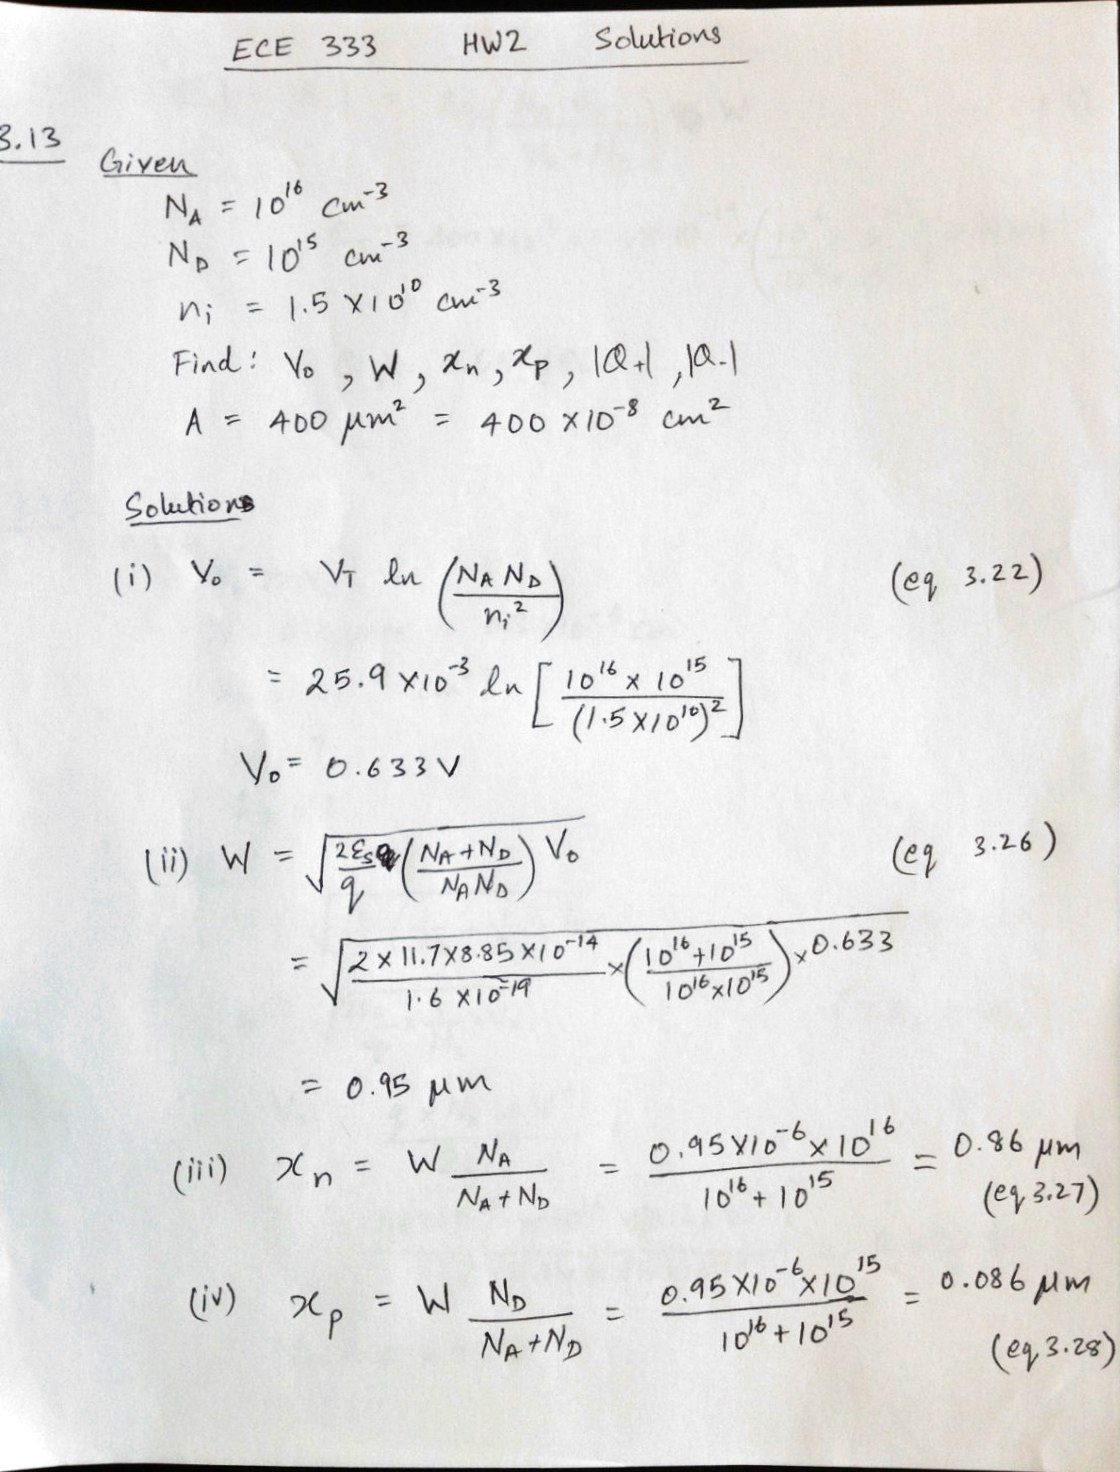 ECE 333 HW2 Solutions
3.13
Given
N_A = 10^16 cm^-3
N_D = 10^15 cm^-3
n_i = 1.5 × 10^10 cm^-3
Find: V_0, W, x_n, x_p, |Q+|, |Q-|
A = 400 μm^2 = 400 × 10^-8 cm^2
Solutions
(i) V_0 = V_T ln (N_A N_D / n_i^2) (eq 3.22)
= 25.9 × 10^-3 ln [10^16 × 10^15 / (1.5 × 10^10)^2]
V_0 = 0.633 V
(ii) W = √(2ε_s / q (N_A + N_D / N_A N_D) V_0) (eq 3.26)
= √(2 × 11.7 × 8.85 × 10^-14 / 1.6 × 10^-19 × (10^16 + 10^15 / 10^16 × 10^15) × 0.633)
= 0.95 μm
(iii) x_n = W N_A / N_A + N_D = 0.95 × 10^-6 × 10^16 / 10^16 + 10^15 = 0.86 μm
(eq 3.27)
(iv) x_p = W N_D / N_A + N_D = 0.95 × 10^-6 × 10^15 / 10^16 + 10^15 = 0.086 μm
(eq 3.28)